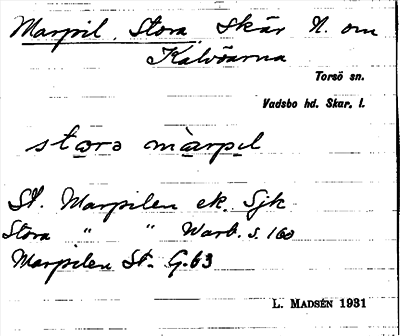 Marpil, Stora Skär N. om
Kalvöarna
Torsö sn.
Vadsbo hd. Skar. l.
stora màrpil
St. Marpilen ek. Sjk
Stora " " Warb. s. 160
Marpilen St. G.63
L. MADSÉN 1931